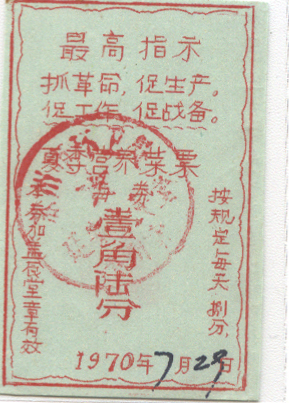 最高指示
抓革命，促生产。
促工作，促战备。
夏季营养菜票
每券
壹角陆分
按规定每天捌分
本券加盖食堂章有效
1970年7月29日